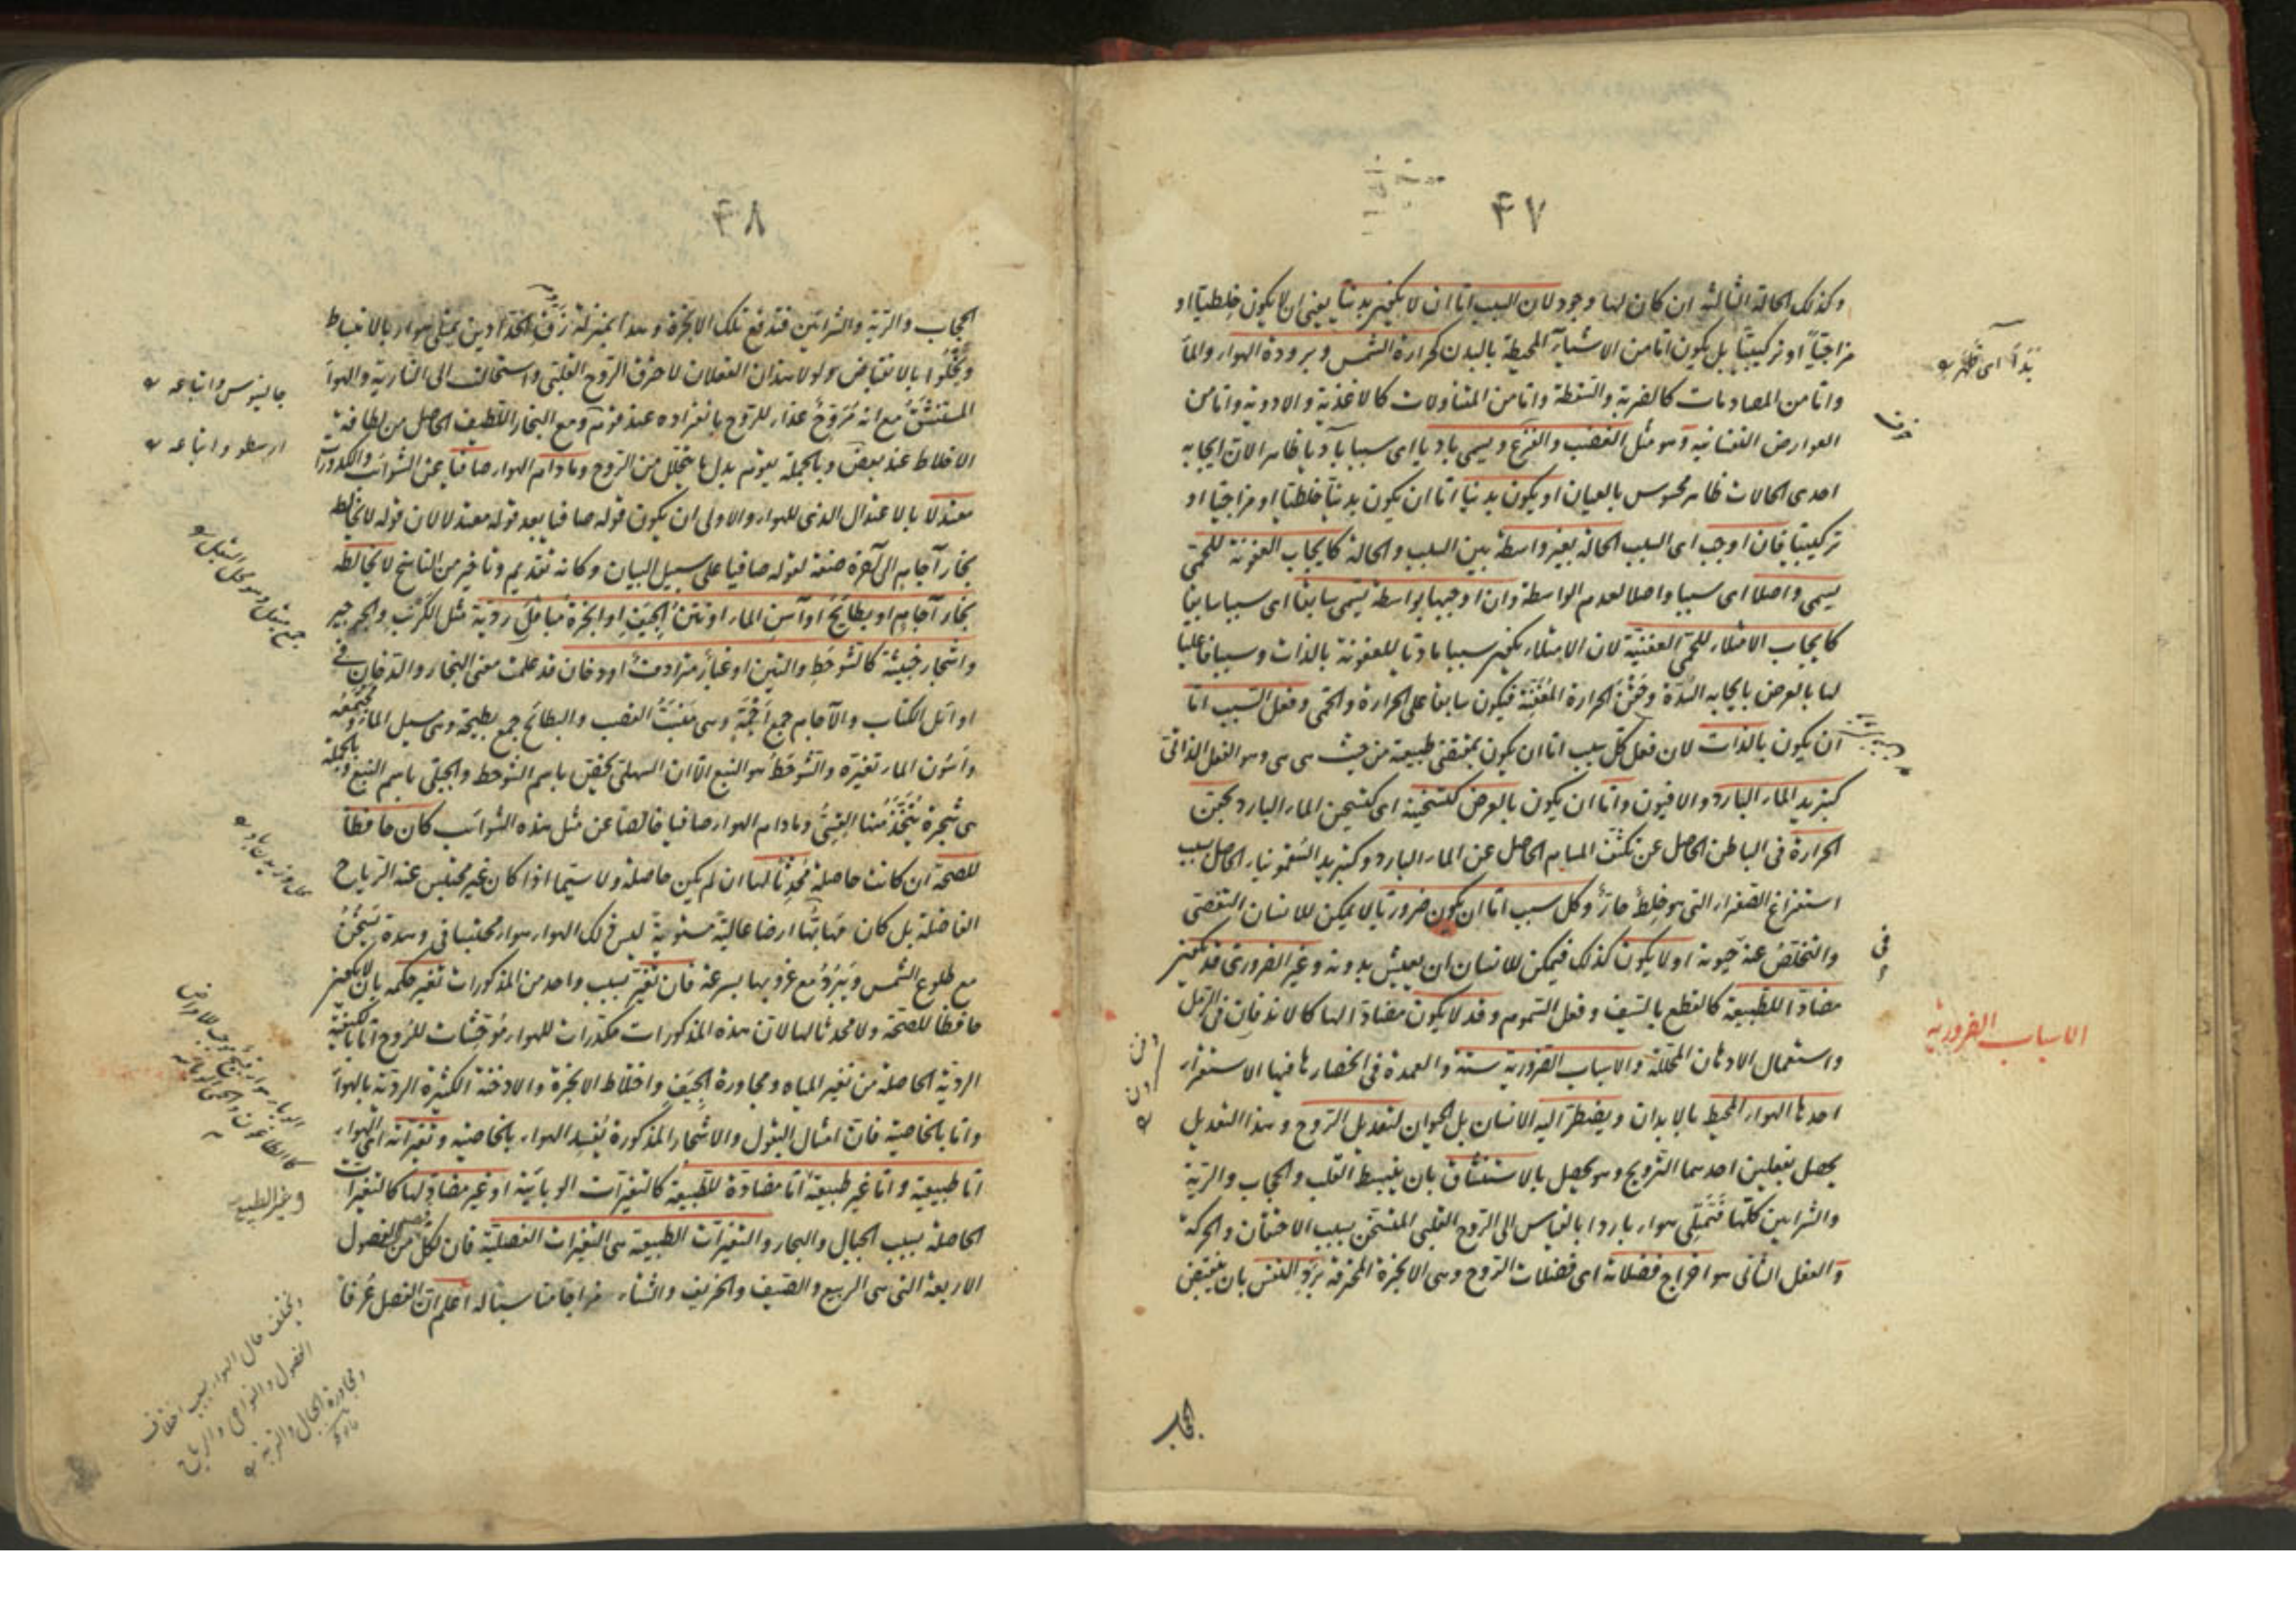 ۴۷
وكذلك الحالة الثالثة ان كان لها وجود لان السبب اما ان لا يكون بدنيا يعنى ان لا يكون خلطيا او
مزاجيا او تركيبيا بل يكون اما من الاشياء المحيطة بالبدن كحرارة الشمس وبرودة الهواء والماء
واما من المصادمات كالضربة والسقطة واما من المتناولات كالاغذية والادوية واما من
العوارض النفسانية وهو مثل الغضب والفزع ويسمى باديا اى سببا باديا ظاهرا لان ايجابه
احدى الحالات ظاهر محسوس بالعيان او يكون بدنيا اما ان يكون بدنيا خلطيا او مزاجيا او
تركيبيا فان اوجب اى السبب الحالة بغير واسطة بين السبب والحالة كايجاب العفونة للحمى
يسمى واصلا اى سببا واصلا لعدم الواسطة وان اوجبها بواسطة يسمى سابقا اى سببا سابقا
كايجاب الامتلاء للحمى العفنية لان الامتلاء يكون سببا ماديا للعفونة بالذات وسببا فاعليا
لها بالعرض بايجابه السدة وحقن الحرارة المعفنة فيكون سابقا على الحرارة والحمى وفعل السبب اما
ان يكون بالذات لان فعل كل سبب اما ان يكون بمقتضى طبيعته من حيث هى هى وهو الفعل الذاتى
كتبريد الماء البارد والافيون واما ان يكون بالعرض كتسخينه اى كتسخين الماء البارد بحقن
الحرارة فى الباطن الحاصل عن تكثف المسام الحاصل عن الماء البارد وكتبريد السقمونيا الحاصل بسبب
استفراغ الصفراء التى هو خلط حار وكل سبب اما ان يكون ضروريا لا يمكن للانسان التفصى
والتخلص عنه حيوته او لا يكون كذلك فيمكن للانسان ان يعيش بدونه وغير الضرورى قد يكون
مضادا للطبيعة كالقطع بالسيف وفعل السموم وقد لا يكون مضادا لها كالاندفان فى الرمل
واستعمال الادهان المحللة والاسباب الضرورية ستة والعمدة فى انحصارها فيها الاستقراء
احدها الهواء المحيط بالابدان ويضطر اليه الانسان بل الحيوان لتعديل الروح وهذا التعديل
يحصل بفعلين احدهما الترويح وهو يحصل بالاستنشاق بان ينبسط القلب والحجاب والرية
والشرايين كلها فتمتلى هواء باردا بالقياس الى الروح القلبى المتسخن بسبب الاحتقان والحركة
والفعل الثانى هو اخراج فضلاته اى فضلات الروح وهى الابخرة المحترقة برد النفس بان ينقبض
الحجاب
بدأ اى ظهر
فى
الاسباب الضرورية
۴۸
الحجاب والرية والشرايين فتدفع تلك الابخرة وهذا بمنزلة زق الحدادين يمتلى هواء بالانبساط
ويخلوا بالانقباض ولولا هذان الفعلان لاحترق الروح القلبى واستحال الى النارية والهواء
المستنشق مع انه مروح غذاء للروح بانفراده عند قوم ومع البخار اللطيف الحاصل من لطافة
الاخلاط عند بعض وبالجملة يقوم بدل ما يتحلل من الروح ومادام الهواء صافيا عن الشوائب والكدورات
معتدلا بالاعتدال الذى للهواء والاولى ان يكون قوله صافيا بعد قوله معتدلا لان قوله لا يخالطه
بخار آجام الى آخره صفة لقوله صافيا على سبيل البيان وكانه تقديم وتاخير من الناسخ لا يخالطه
بخار آجام او بطائح او آسن الماء او نتن الجيف او ابخرة مباقل ردية مثل الكرنب والجرجير
واشجار خبيثة كالشوحط والتين او غبار مترادف او دخان قد علمت معنى البخار والدخان فى
اوائل الكتاب والآجام جمع اجمة وهى منبت القصب والبطائح جمع بطيحة وهى مسيل الماء ومجتمعه
واسون الماء تغيره والشوحط هو النبع الا ان السهلى يختص باسم الشوحط والجبلى باسم النبع وبالجملة
هى شجرة يتخذ منها القسى ومادام الهواء صافيا خالصا عن مثل هذه الشوائب كان حافظا
للصحة ان كانت حاصلة محدثا لها ان لم يكن حاصلة ولا سيما اذا كان غير محتبس عنه الرياح
الفاضلة بل كان مهابها ارضا عالية مستوية ليس ذلك الهواء هواء محتبسا فى وهدة يسخن
مع طلوع الشمس ويبرد مع غروبها بسرعة فان تغير بسبب واحد من المذكورات تغير حكمه بان لا يكون
حافظا للصحة ولا محدثا لها لان هذه المذكورات مكدرات للهواء موحشات للروح اما بالكيفية
الردية الحاصلة من تغير المياه ومجاورة الجيف واختلاط الابخرة والادخنة الكثيرة الردية بالهواء
واما بالخاصية فان امثال البقول والاشجار المذكورة يفسد الهواء بالخاصية وتغيراته اى الهواء
اما طبيعية واما غير طبيعية اما مضادة للطبيعة كالتغيرات الوبائية او غير مضادة لها كالتغيرات
الحاصلة بسبب الجبال والبحار والتغيرات الطبيعية هى التغيرات الفصلية فان لكل فصل من الفصول
الاربعة التى هى الربيع والصيف والخريف والشتاء مزاجا مناسبا له اعلم ان الفصل عرفا
جالينوس واتباعه
ارسطو واتباعه
وغير الطبيعى
ويختلف حال الهواء بسبب اختلاف
الفصول والنواحى والرياح
ومجاورة الجبال والتربة